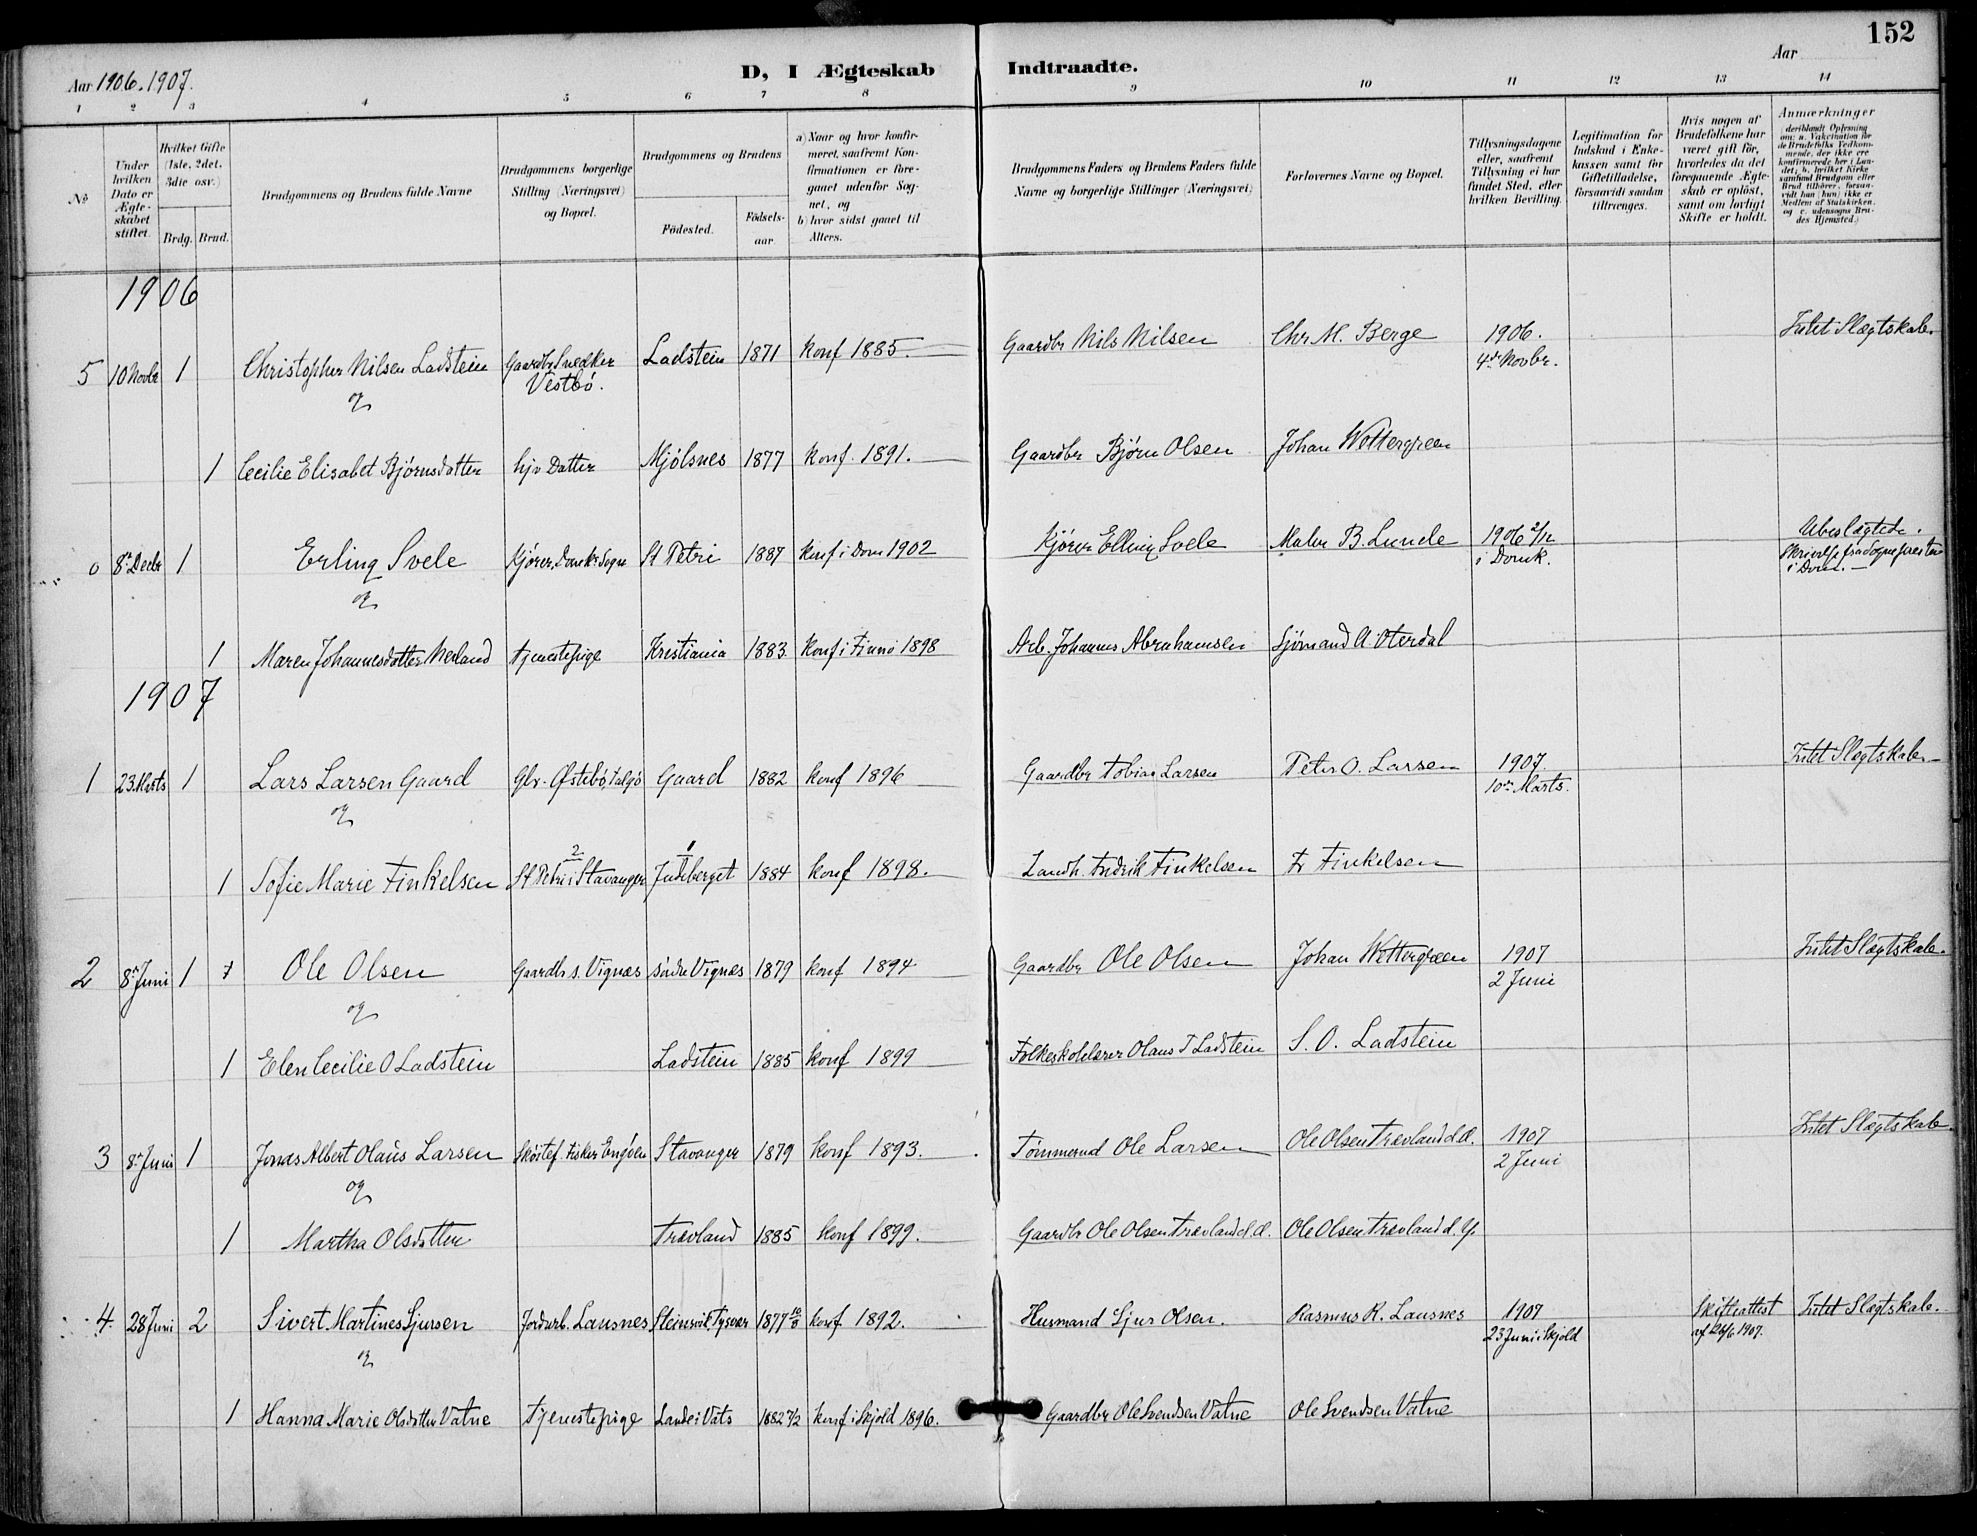 152
Aar 1906. 1907.
D, I Ægteskab Indtraadte.
Aar
1 2 3 4 5 6 7 8 9 10 11 12 13 14
No
Under hvilken Dato er Ægteskabet stiftet.
Hvilket Gifte (1ste, 2det, 3die osv.)
Brdg. Brud.
Brudgommens og Brudens fulde Navne
Brudgommens borgerlige Stilling (Næringsvei) og Bopæl.
Brudgommens og Brudens
Fødested.
Fødselsaar
a) Naar og hvor konfirmeret, saafremt Konfirmationen er foregaaet udenfor Sognet, og
b) hvor sidst gaaet til Alters.
Brudgommens Faders og Brudens Faders fulde Navne og borgerlige Stillinger (Næringsvei)
Forlovernes Navne og Bopæl.
Tillysningsdagene eller, saafremt Tillysning ei har fundet Sted, efter hvilken Bevilling.
Legitimation for Indskud i Enkekassen samt for Giftetilladelse, forsaavidt saadan tiltrænges.
Hvis nogen af Brudefolkene har været gift før, hvorledes da det foregaaende Ægteskab er opløst, samt om lovligt Skifte er holdt.
Anmærkninger (deriblandt Oplysning om: a. Vakcination for de Brudefolks Vedkommende, der ikke ere konfirmerede her i Landet; b. hvilket Kirkesamfund Brudgom eller Brud tilhører, forsaavidt han (hun) ikke er Medlem af Statskirken, og c. udensogns Brudes Hjemsted.)
1906
5 10 Novbr 1 Christopher Nilsen Ladstein Gaardbr Snedker Vestbö. Ladstein 1871 konf 1885. Gaardbr Nils Nilsen Chr. M. Berge 1906. 4de Novbr. Intet Slægtskab.
og
1 Cecilie Elisabet Bjørnsdatter hjv Datter Mjølsnes 1877 konf. 1891. Gaardbr Bjørn Olsen Johan Wettergreen
8de Decbr 1 Erling Svele Kjører, Domk. Sogn St Petri 1887 konf i Dom 1902 Kjører Elling Svele Maler B. Lunde 1906 2/12 i Domk. Ubeslægtede. Skrivelse fra Sognepresten i Dom.
og
1 Maren Johannesdatter Meland tjenestepige Kristiania 1883 konf i Finnö 1898 Arb. Johannes Abrahamsen Sjømand A Oterdal
1907
1 23. Marts 1 Lars Larsen Gaard Gbr. Østebö, Talgö Gaard 1882 konf 1896 Gaardbr Tobias Larsen Peter O. Larsen 1907. 10de Marts. Intet Slægtskab.
og
1 Sofie Marie Finkelsen 2 St Petri i Stavanger 1 Judeberget 1884 konf 1898. Landh. Fredrik Finkelsen Fr Finkelsen
2 8de Juni 1 Ole Olsen Gaardbr s. Vignæs søndre Vignes 1879 konf 1894 Gaardbr Ole Olsen Johan Wettergreen 1907 2 Juni Intet Slægtskab.
og
1 Elen Cecilie O Ladstein Ladstein 1885 konf 1899 Folkeskolelærer Olaus T Ladstein S. O. Ladstein
3 8de Juni 1 Jonas Albert Olaus Larsen Skøitef. Fisker Engöen Stavanger 1879 konf 1893. Tømmermd Ole Larsen Ole Olsen Trævland d.Æ. 1907 2 Juni Intet Slægtskab
og
1 Martha Olsdatter Trævland 1885 konf 1899. Gaardbr Ole Olsen Trævland d.Æ. Ole Olsen Trævland d. Y.
4 28 Juni 2 Sivert Martines Sjursen Jordarb. Lausnes Steinsvik, Tysvær 1877 konf 1892. Husmand Sjur Olsen. Rasmus R. Lausnes 1907 23 Juni i Skjold Skifteattest af 26/6 1907. Intet Slægtskab.
og
1 Hanna Marie Olsdatter Vatne Tjenestepige Lande i Vats 1882 konf i Skjold 1896. Gaardbr Ole Svendsen Vatne Ole Svendsen Vatne